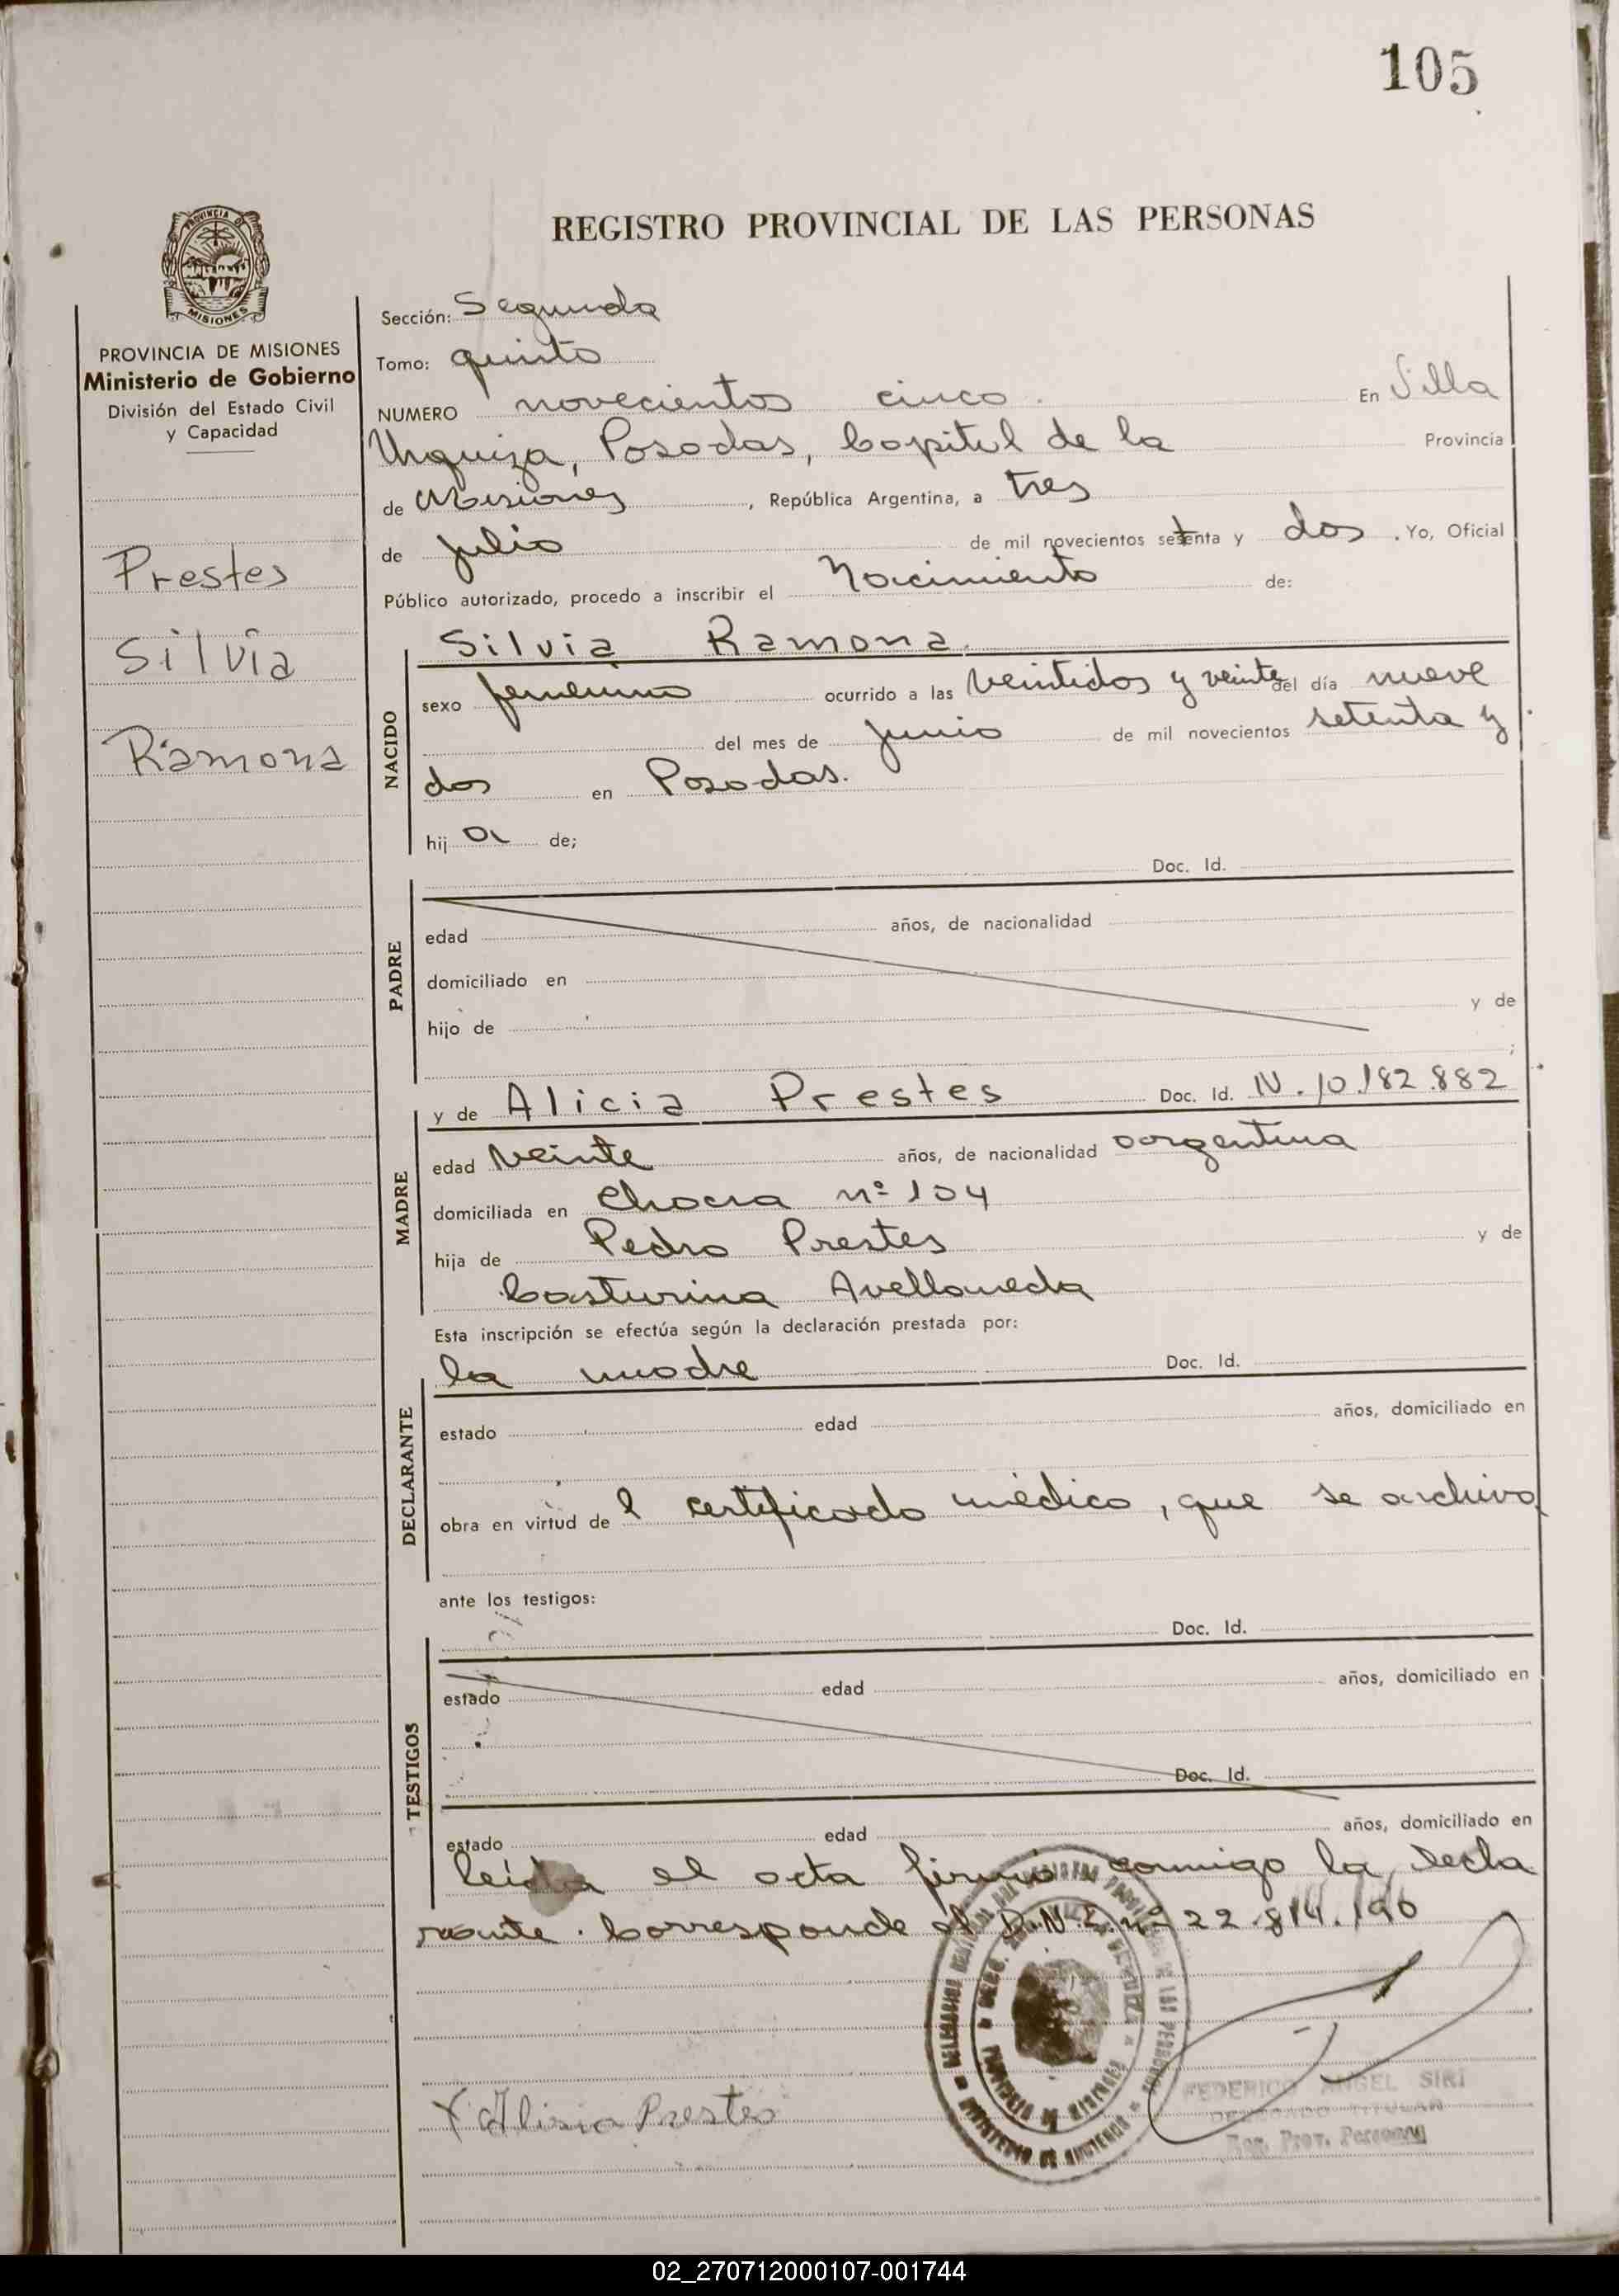 105
REGISTRO PROVINCIAL DE LAS PERSONAS
MISIONES
PROVINCIA DE MISIONES
Ministerio de Gobierno
División del Estado Civil
y Capacidad
Prestes
Silvia
Ramona
Sección: Segunda
Tomo: quinto
NUMERO novecientos cinco. En Villa
Urquiza, Posadas, Capital de la Provincia
de Misiones, República Argentina, a tres
de julio de mil novecientos setenta y dos. Yo, Oficial
Público autorizado, procedo a inscribir el Nacimiento de:
NACIDO
Silvia Ramona.
sexo femenino ocurrido a las veintidos y veinte del día nueve
del mes de junio de mil novecientos setenta y
dos en Posadas.
hij a de;
PADRE
Doc. Id.
edad años, de nacionalidad
domiciliado en
hijo de y de
;
MADRE
y de Alicia Prestes Doc. Id. N. 10.182.882
edad veinte años, de nacionalidad argentina
domiciliada en Chacra nº 104
hija de Pedro Prestes y de
Casturina Avellaneda
Esta inscripción se efectúa según la declaración prestada por:
DECLARANTE
la madre Doc. Id.
estado edad años, domiciliado en
obra en virtud de l certificado médico, que se archiva
ante los testigos:
TESTIGOS
Doc. Id.
estado edad años, domiciliado en
Doc. Id.
estado edad años, domiciliado en
leída el acta firmó conmigo la decla
rante. Corresponde al D.N.I. nº 22.814.190
Alisia Prestes
FEDERICO ANGEL SIRI
DELEGADO TITULAR
Reg. Prov. Personas
02_270712000107-001744